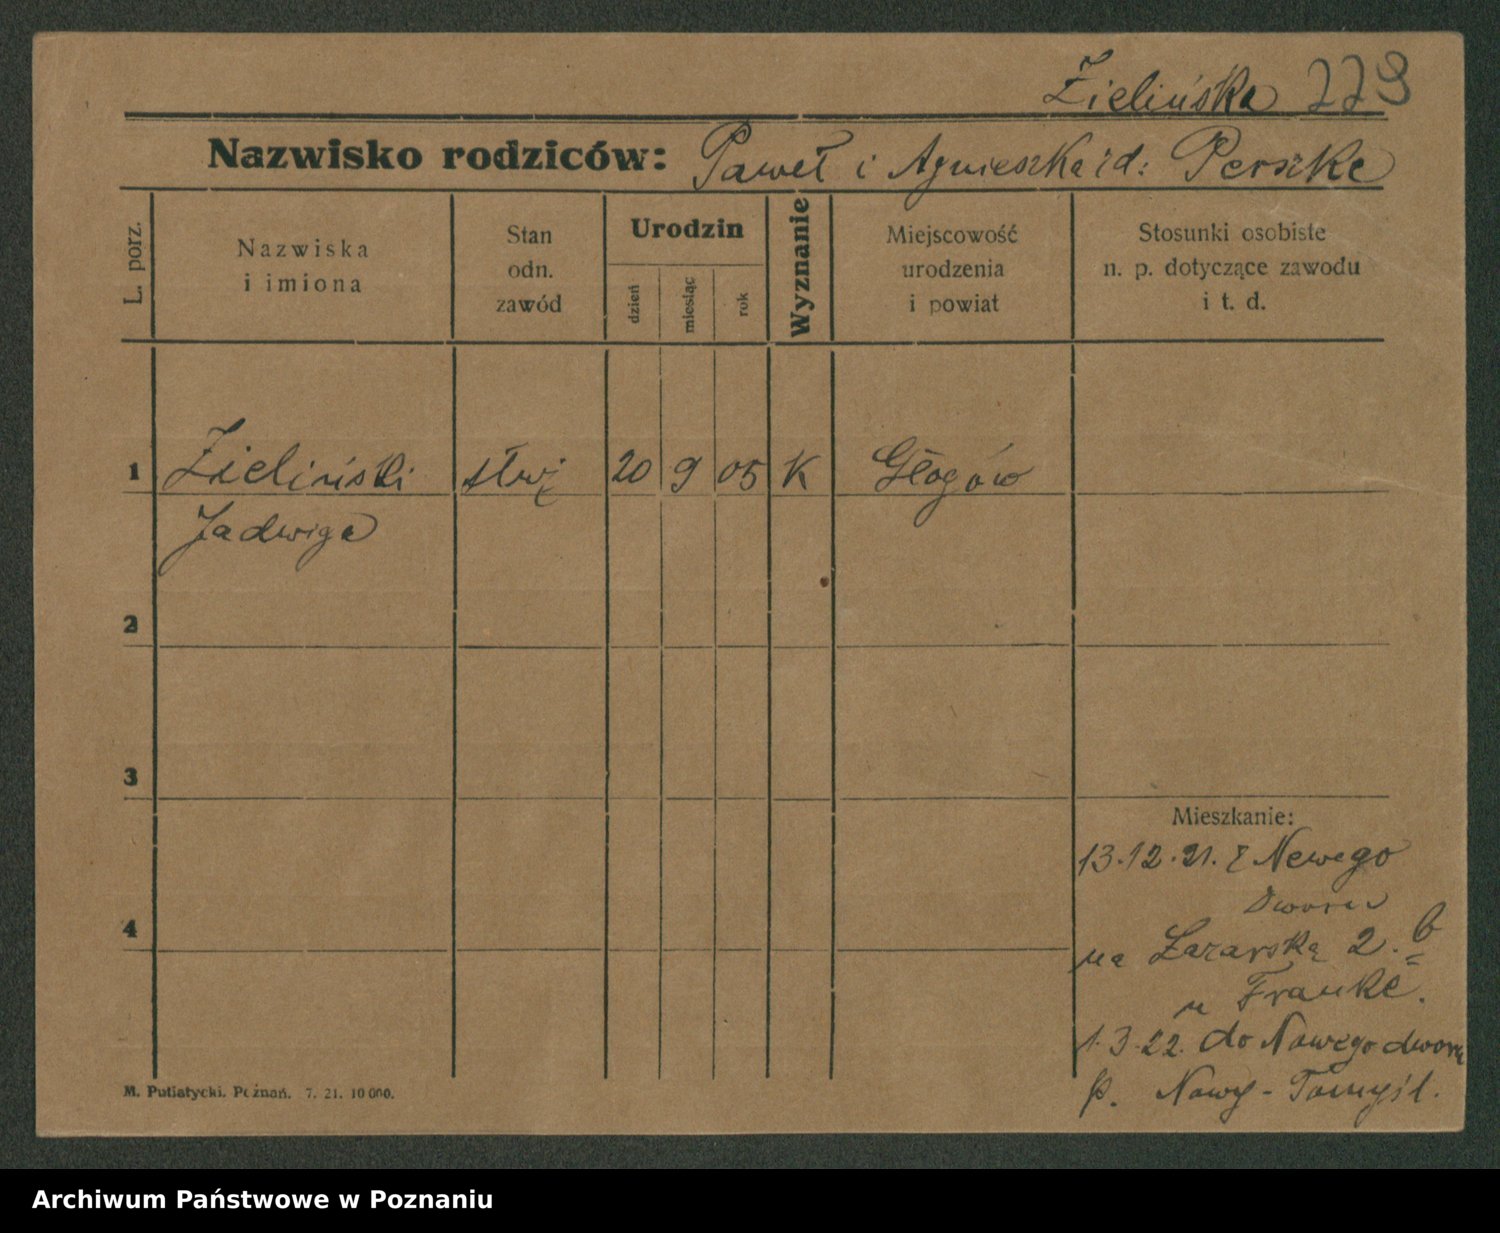 Zielińska 229
Nazwisko rodziców: Paweł i Agnieszka zd: Perszke
L. porz.
Nazwiska
i imiona
Stan
odn.
zawód
Urodzin
dzień
miesiąc
rok
Wyznanie
Miejscowość
urodzenia
i powiat
Stosunki osobiste
n. p. dotyczące zawodu
i t. d.
1 Zieliński służ 20 9 05 K Głogów
Jadwiga
2
3
4
Mieszkanie:
13.12.21. z Nowego
Dworu
na Łazarską 2. b
u Franke.
1.3.22. do Nowego dworu
p. Nowy-Tomyśl.
M. Putiatycki. Poznań. 7. 21. 10 000.
Archiwum Państwowe w Poznaniu